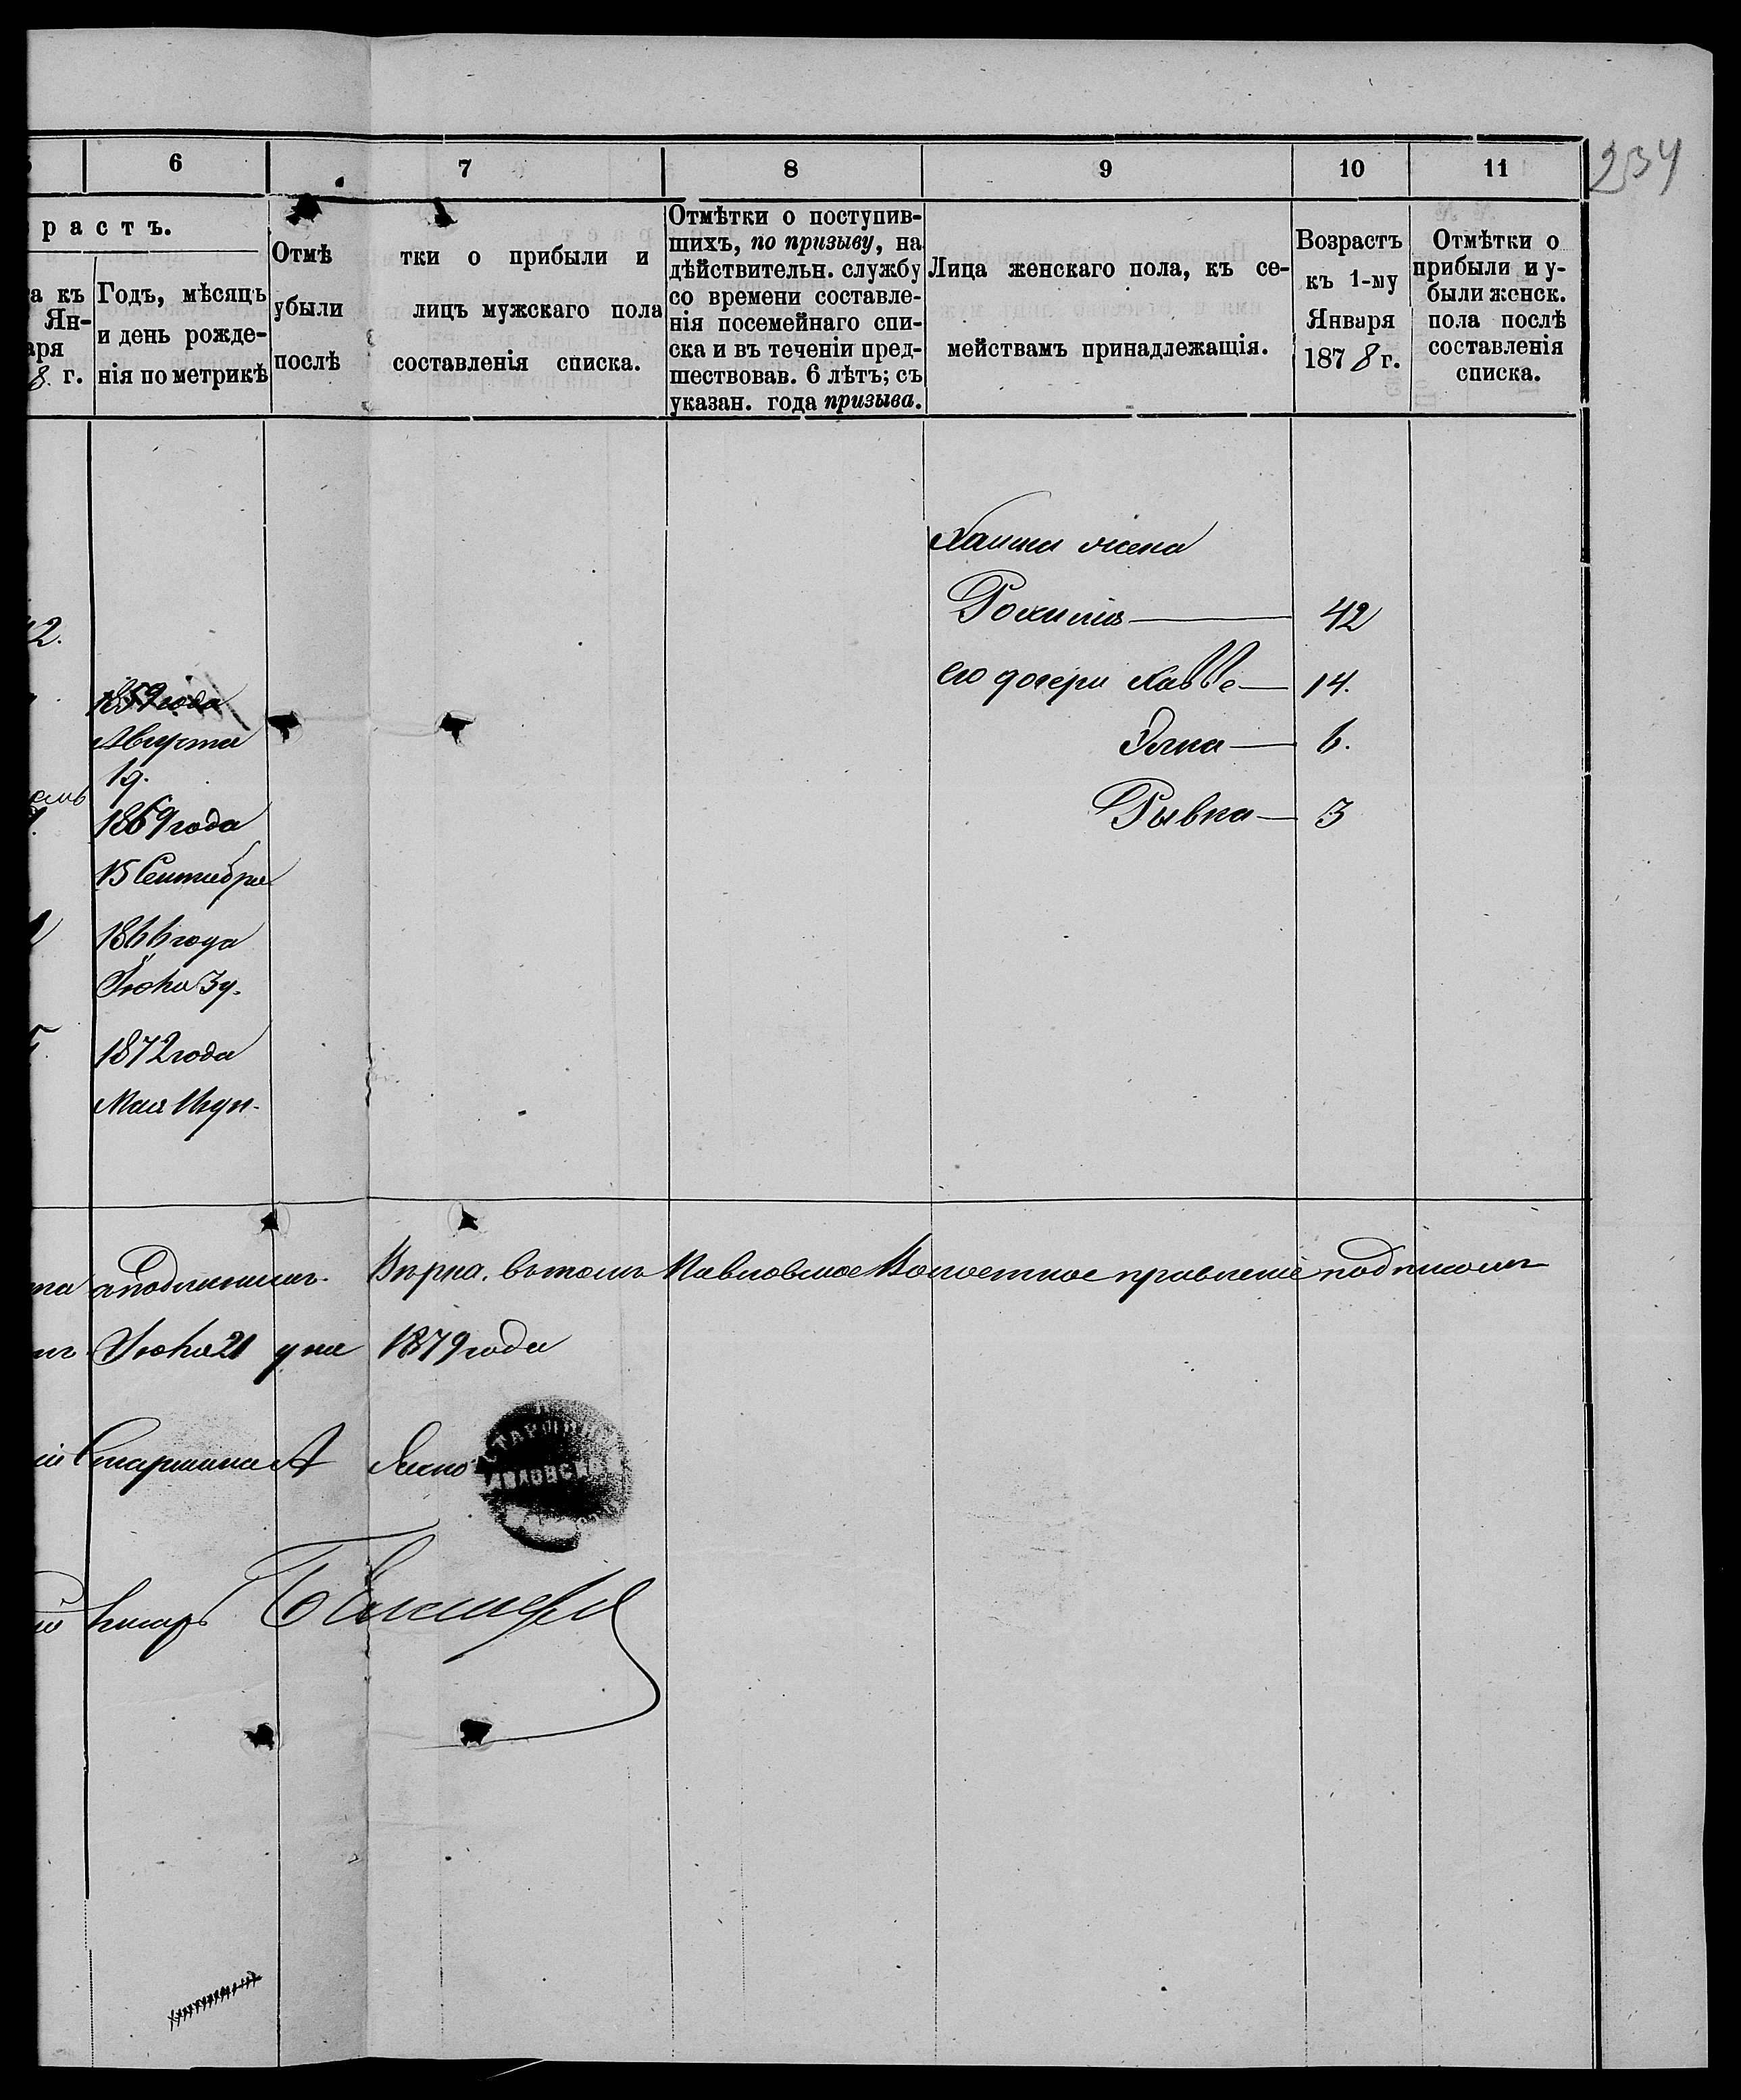 234
6 7 8 9 10 11
растъ.
а къ
Ян-
аря
8. г.
Годъ, мѣсяцъ
и день рожде-
нія по метрикѣ
Отмѣтки о прибыли и
убыли лицъ мужскаго пола
послѣ составленія списка.
Отмѣтки о поступив-
шихъ, по призыву, на
дѣйствительн. службу
со времени составле-
нія посемейнаго спи-
ска и въ теченіи пред-
шествовав. 6 лѣтъ; съ
указан. года призыва.
Лица женскаго пола, къ се-
мействамъ принадлежащія.
Возрастъ
къ 1-му
Января
1878 г.
Отмѣтки о
прибыли и у-
были женск.
пола послѣ
составленія
списка.
жена
Рохиля 42
его дочери Хавве 14.
Элка 6.
Рывка 3
1859 года
Августа
19.
1869 года
15 Сентября
1866 года
Іюня 3 д.
1872 года
Мая
Вѣрна. въ томъ Павловское Волостное правленіе подписомъ
Іюня 21 дня 1879 года
Старшина А
Писарь